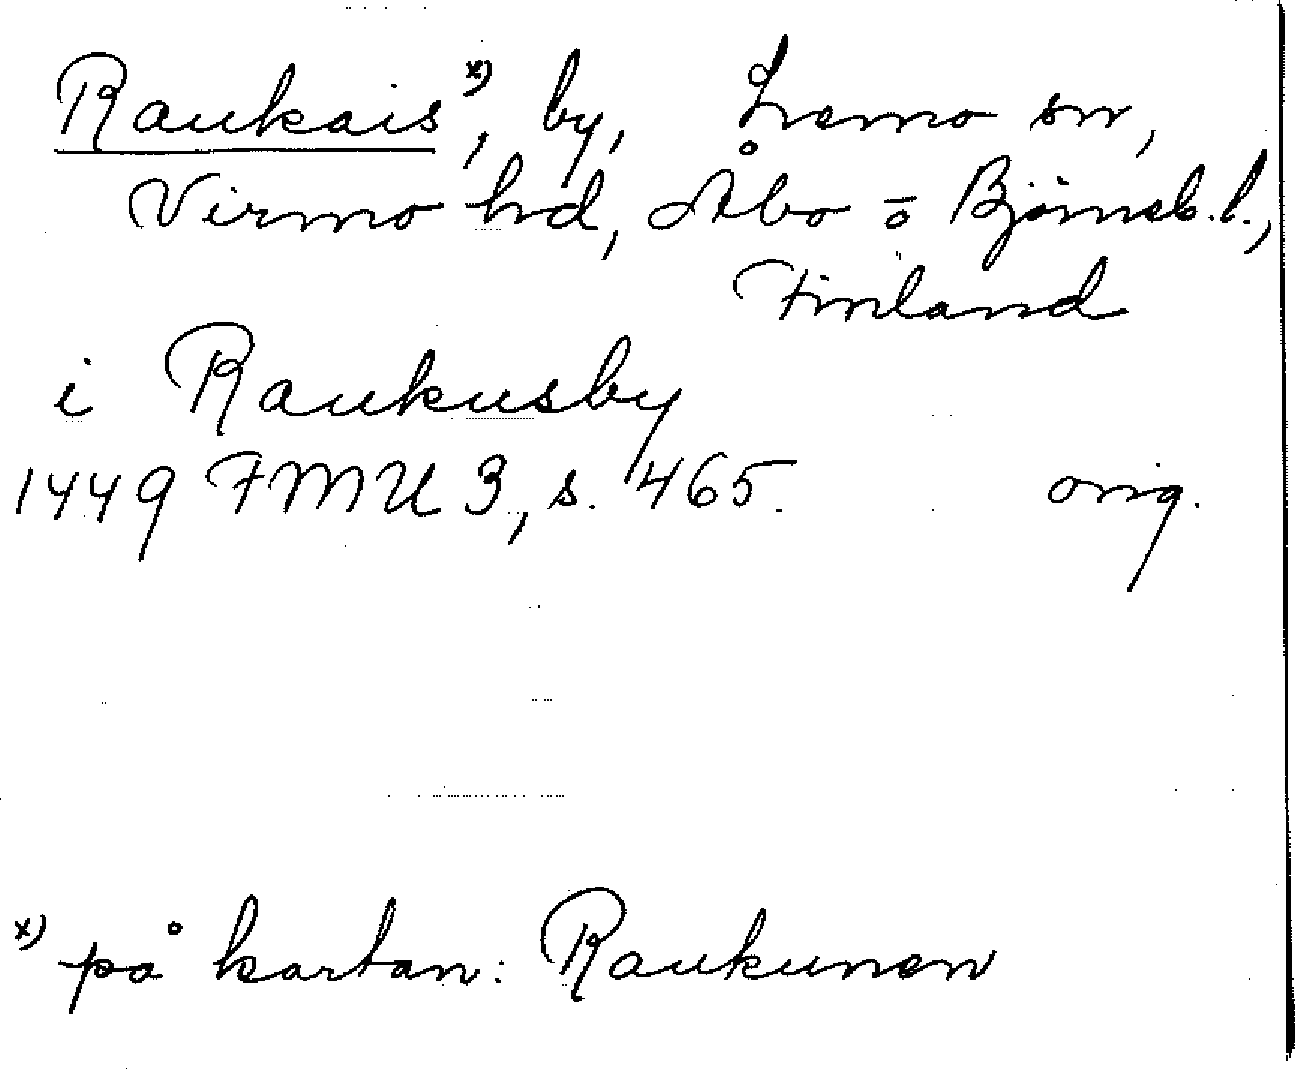 Raukais x), by, Lemo sn,
Virmo hd, Åbo o Björneb. l.,
Finland
i Raukusby
1449 FMU 3, s. 465. orig.
x) på kartan: Raukunen